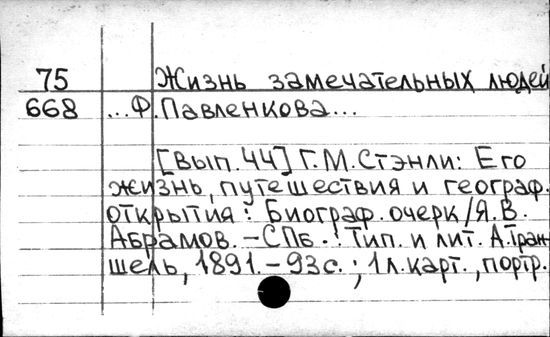 75 Жизнь замечательных людей
668 ...Ф.Павленкова...
[Вып.44] Г.М.Стэнли: Его
жизнь, путешествия и географ.
открытия: Биограф. очерк/Я.В.
Абрамов.-СПб.: Тип. и лит. А.Тран-
шель, 1891.-93с.; 1л.карт., портр.